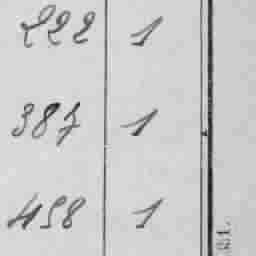 222 1
387 1
458 1